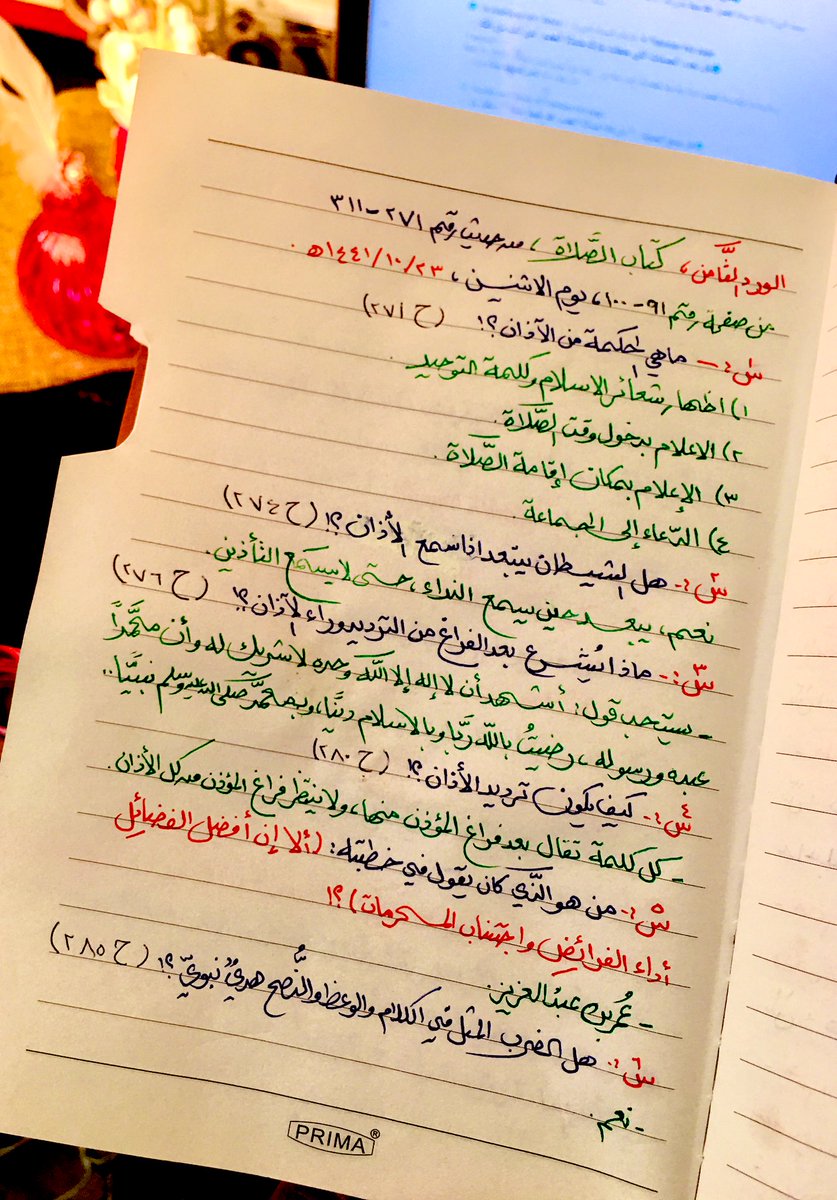 الورد الثَّامن، كتاب الصَّلاة، من حديث رقم ٢٧١-٣١١
من صفحة رقم ٩١-١٠٠، يوم الاثنين، ١٤٤١/١٠/٢٣هـ.
س١:- ماهي الحكمة من الآذان؟! (ح ٢٧١)
١) اظهار شعائر الاسلام وكلمة التوحيد.
٢) الاعلام بدخول وقت الصَّلاة.
٣) الإعلام بمكان إقامة الصَّلاة.
٤) الدّعاء إلى الجماعة.
س٢:- هل الشيطان يبتعد اذا سمع الأذان؟! (ح ٢٧٤)
نعم، يبعد حين يسمع النداء، حتى لا يسمع التأذين.
س٣:- ماذا يُشرع بعد الفراغ من الترديد وراء الآذان؟! (ح ٢٧٦)
- يستحب قول: أشهد أن لا إله إلا اللّٰه وحده لا شريك له وأن محمَّداً
عبده ورسوله، رضيتُ باللّٰه ربًّا وبالاسلام دينًا، وبمحمَّدٍ صلى الله عليه وسلم نبيًّا..
س٤:- كيف يكون ترديد الأذان؟! (ح ٢٨٠)
- كل كلمة تقال بعد فراغ المؤذن منها، ولا ينتظر فراغ المؤذن من كل الأذان.
س٥:- من هو الَّذي كان يقول في خطبته: (ألا إن أفضل الفضائِل
أداء الفرائض واجتناب المحرمات)؟!
- عُمر بن عبد العزيز.
س٦:- هل الضرب المثل في الكلام والوعظ والنُّصح هديٌ نبويّ؟! (ح ٢٨٥)
- نعم.
PRIMA®